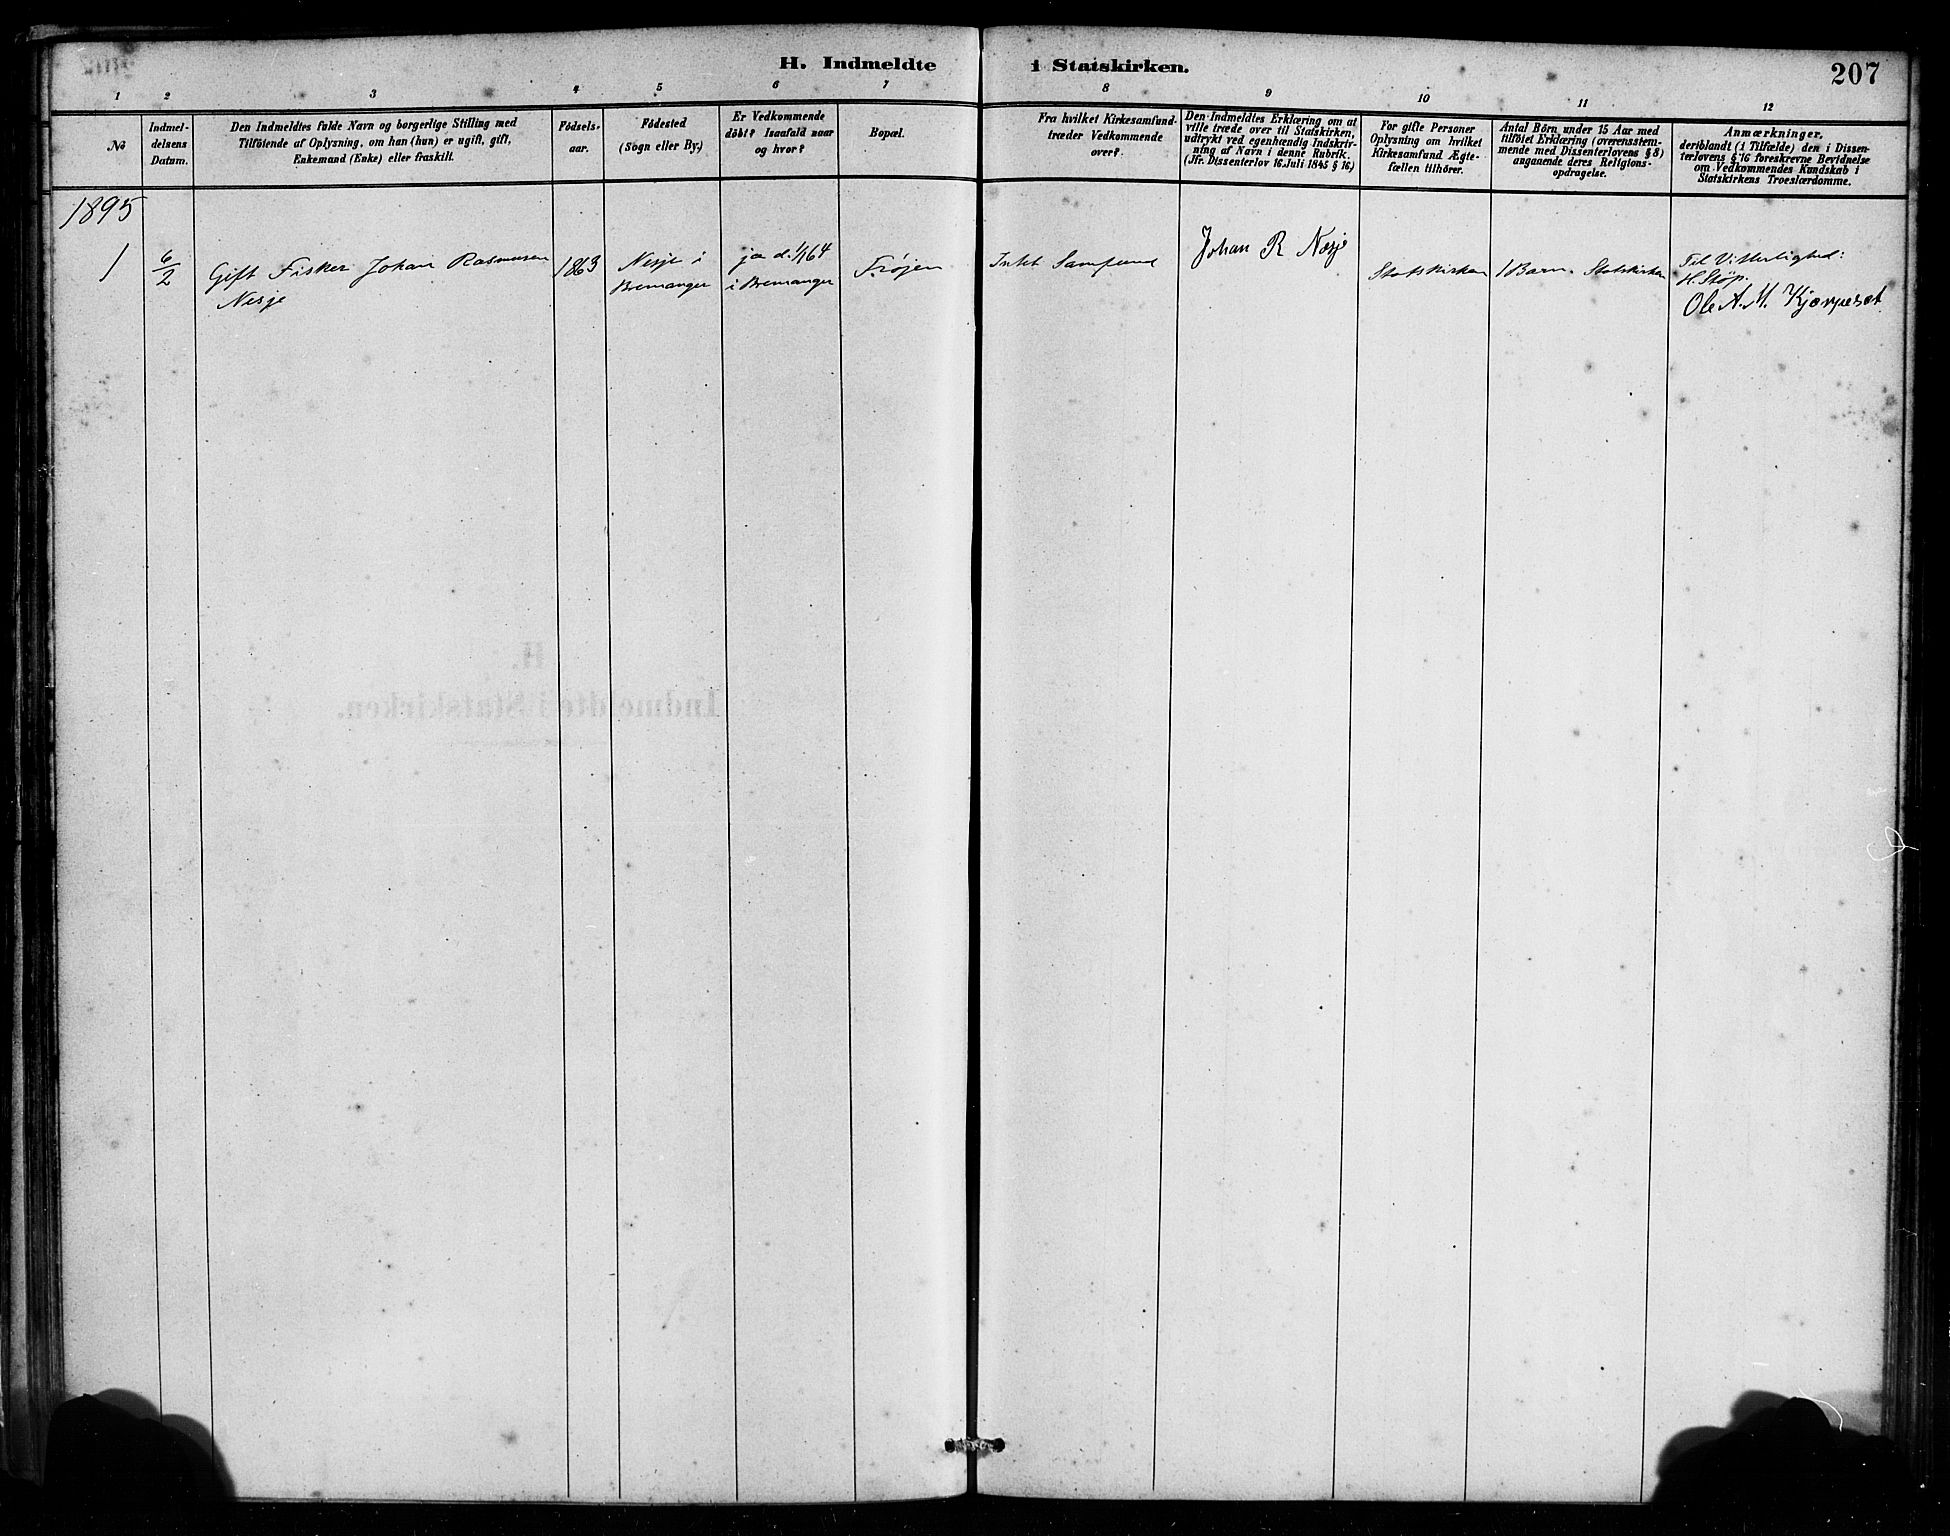 H. Indmeldte i Statskirken.
207
1 2 3 4 5 6 7 8 9 10 11 12
No
Indmel-
delsens
Datum.
Den Indmeldtes fulde Navn og borgerlige Stilling med
Tilföiende af Oplysning, om han (hun) er ugift, gift,
Enkemand (Enke) eller fraskilt.
Födsels-
aar.
Födested
(Sogn eller By.)
Er Vedkommende
döbt? Isaafald naar
og hvor?
Bopæl.
Fra hvilket Kirkesamfund
træder Vedkommende
over?
Den Indmeldtes Erklæring om at
ville træde over til Statskirken,
udtrykt ved egenhændig Indskriv-
ning af Navn i denne Rubrik.
(Jfr. Dissenterlov 16. Juli 1845 § 16.)
For gifte Personer
Oplysning om hvilket
Kirkesamfund Ægte-
fællen tilhörer.
Antal Börn under 15 Aar med
tilföiet Erklæring (overensstem-
mende med Dissenterlovens § 8)
angaaende deres Religions-
opdragelse.
Anmærkninger,
deriblandt (i Tilfælde) den i Dissen-
terlovens § 16 foreskrevne Bevidnelse
om Vedkommendes Kundskab i
Statskirkens Troeslærdomme.
1895
1
6/2
Gift Fisker Johan Rasmusen
Nesje
1863
Nesje i
Bremanger
ja d. 1/1 64
i Bremanger
Frøjen
Intet Samfund
Johan R Nesje
Statskirken
1 Barn. Statskirken
Til Vitterlighed:
H. Støp.
Ole A. M. Kjerpeset
H.
Indmeldte i Statskirken.